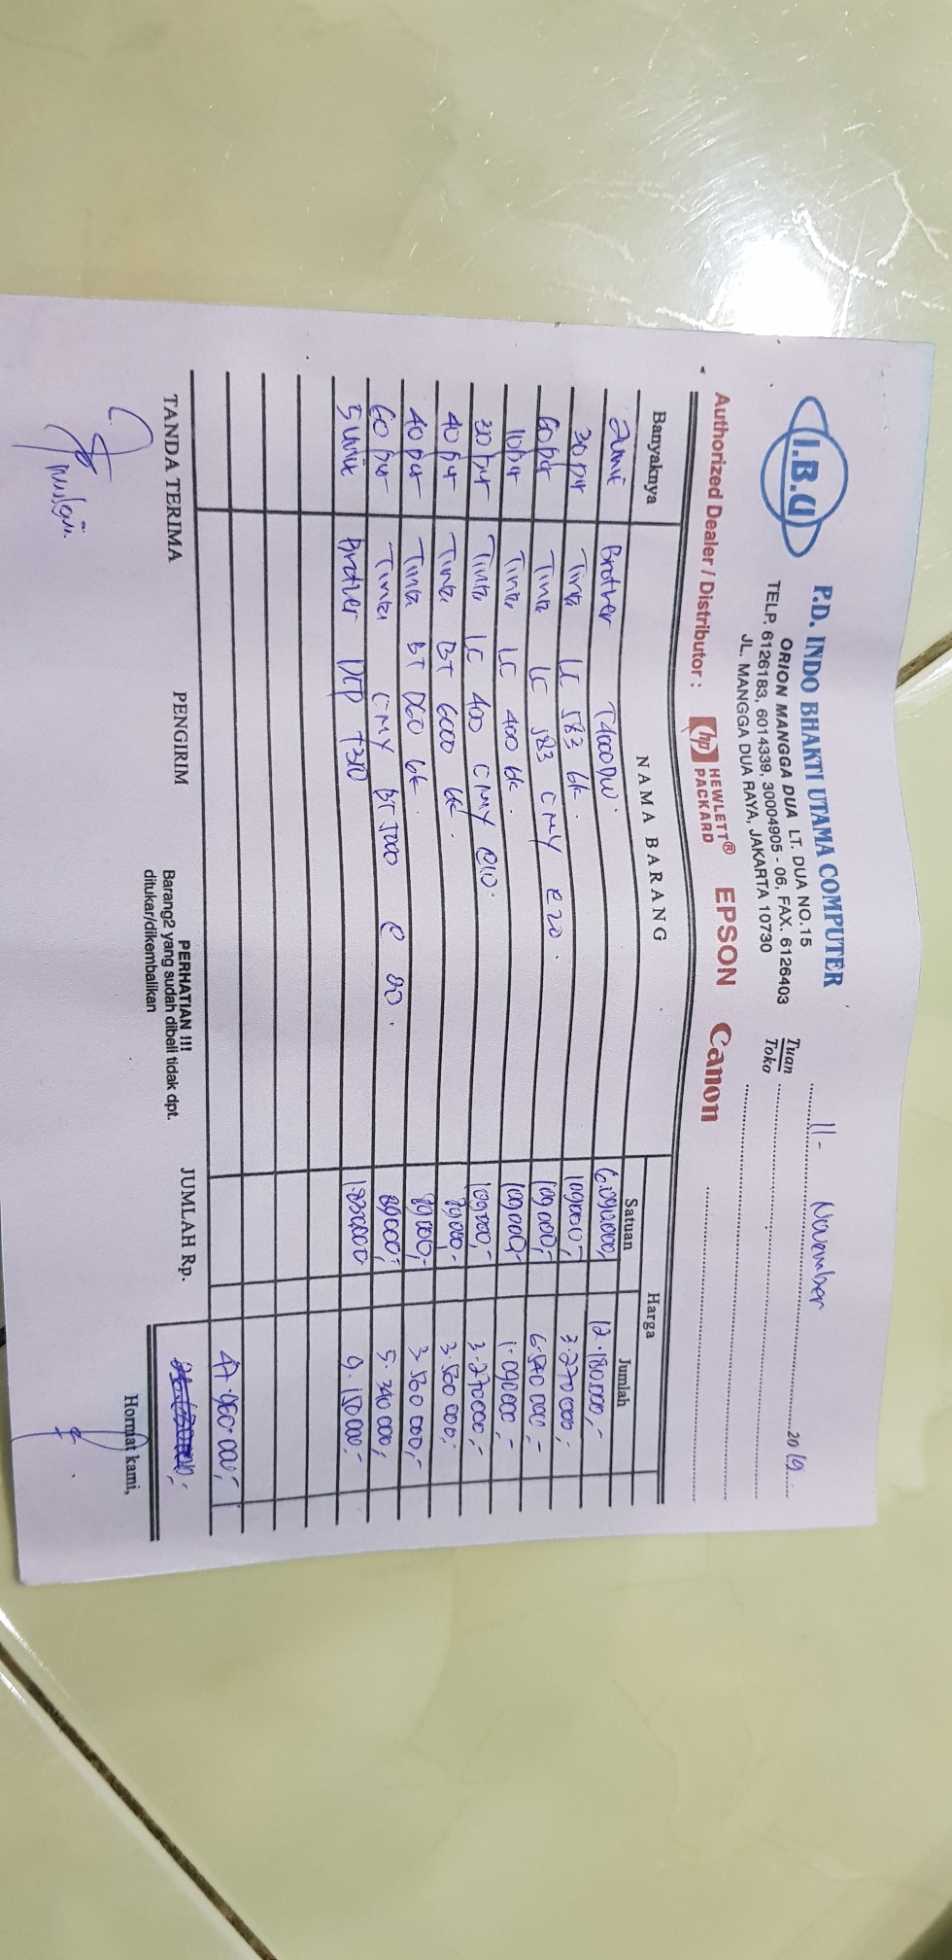 I.B.U
P.D. INDO BHAKTI UTAMA COMPUTER
ORION MANGGA DUA LT. DUA NO.15
TELP. 6126183, 6014339, 30004905 - 06, FAX. 6126403
JL. MANGGA DUA RAYA, JAKARTA 10730
11 - November 2019
Tuan
Toko
Authorized Dealer / Distributor : hp HEWLETT® PACKARD EPSON Canon
Banyaknya NAMA BARANG Harga
Satuan Jumlah
2 unit Brother T4000DW. 6.090.000,- 12.180.000,-
30 pcs Tinta LC 583 bk 109.000,- 3.270.000,-
60 pcs Tinta LC 583 CMY @ 20. 109.000,- 6.540.000,-
10 pcs Tinta LC 400 bk. 109.000,- 1.090.000,-
30 pcs Tinta LC 400 CMY @10. 109.000,- 3.270.000,-
40 pcs Tinta BT 6000 bk. 89.000,- 3.560.000,-
40 pcs Tinta BT D60 bk. 89.000,- 3.560.000,-
60 pcs Tinta CMY BT 5000 @ 20. 89.000,- 5.340.000,-
5 unit Brother DCP T310 1.830.000 9.150.000,-
47.960.000,-
TANDA TERIMA PENGIRIM PERHATIAN !!! JUMLAH Rp.
Barang2 yang sudah dibeli tidak dpt.
ditukar/dikembalikan
Hormat kami,